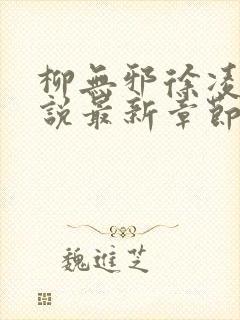 柳無邪徐凌
說最新章節
魏進芝